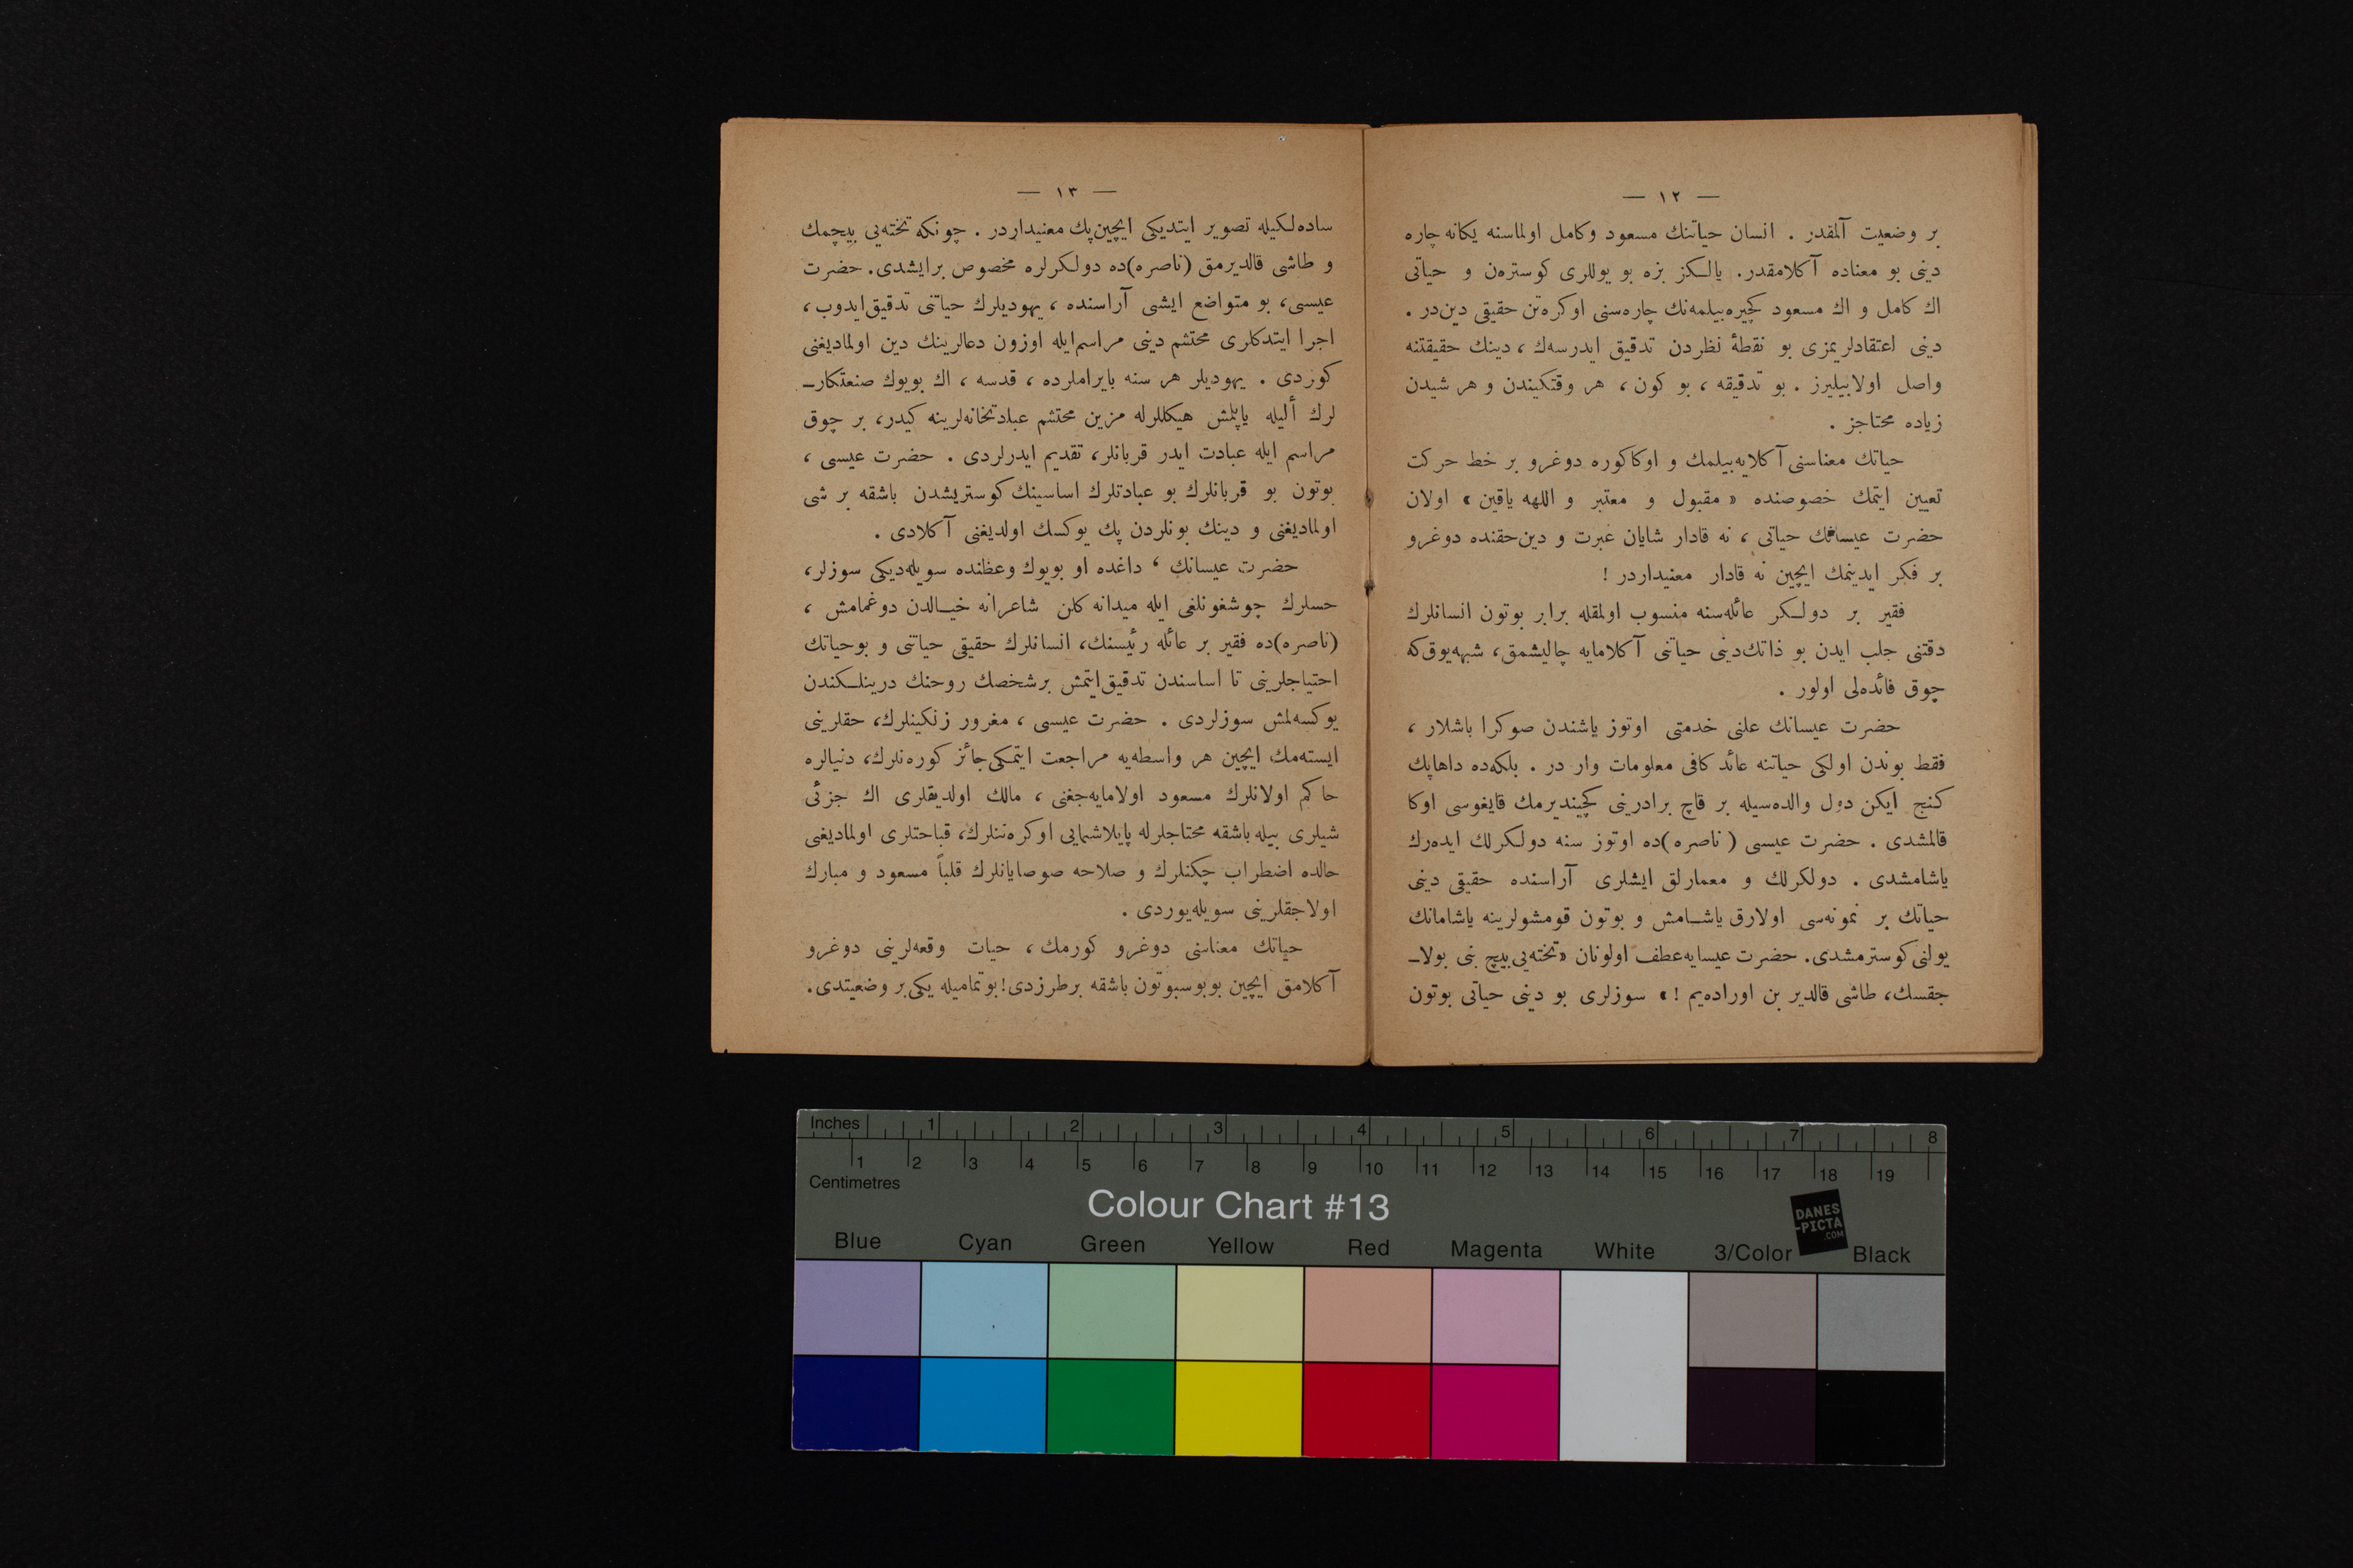 — ١٢ —
بر وضعیت آلمقدر . انسان حیاتنك مسعود وكامل اولماسنه یكانه چاره
دینی بو معناده آكلامقدر. یالـكز بزه بو یوللری كوسترەن و حیاتی
اك كامل و اك مسعود كچیره‌بیلمه‌نك چاره‌سنی اوكره‌تن حقیقی دین‌در .
دینی اعتقادلریمزی بو نقطهٔ نظردن تدقیق ایدرسه‌ك ، دینك حقیقتنه
واصل اولابیلیرز . بو تدقیقه ، بو كون ، هر وقتكیندن و هر شیدن
زیاده محتاجز .
حیاتك معناسنی آكلایه‌بیلمك و اوكا كوره دوغرو بر خط حركت
تعیین ایتمك خصوصنده « مقبول و معتبر و اللهه یاقین » اولان
حضرت عیسانك حیاتی ، نه قادار شایان عبرت و دین حقنده دوغرو
بر فكر ایدینمك ایچین نه قادار معنیداردر !
فقیر بر دولـكر عائله‌سنه منسوب اولمقله برابر بوتون انسانلرك
دقتنی جلب ایدن بو ذاتك دینی حیاتنی آكلامایه چالیشمق، شبهه‌یوق‌كه
چوق فائده‌لی اولور .
حضرت عیسانك علنی خدمتی اوتوز یاشندن صوكرا باشلار ،
فقط بوندن اولكی حیاتنه عائد كافی معلومات وار در . بلكه‌ده داهاپك
كنج ایكن دول والده‌سیله بر قاچ برادرینی كچیندیرمك قایغوسی اوكا
قالمشدی . حضرت عیسی ( ناصره )ده اوتوز سنه دولـكرلك ایده‌رك
یاشامشدی . دولكرلك و معمارلق ایشلری آراسنده حقیقی دینی
حیاتك بر نمونه‌سی اولارق یاشـامش و بوتون قومشولرینه یاشامانك
یولنی كوسترمشدی. حضرت عیسایه عطف اولونان « تخته‌یی بیچ بنی بولا‌ـ
جقسك، طاشی قالدیر بن اوراده‌یم ! » سوزلری بو دینی حیاتی بوتون
— ١٣ —
ساده‌لكیله تصویر ایتدیكی ایچین پك معنیداردر . چونكه تخته‌یی بیچمك
و طاشی قالدیرمق (ناصره)ده دولـكرلره مخصوص برایشدی. حضرت
عیسی، بو متواضع ایشی آراسنده ، یهودیلرك حیاتنی تدقیق ایدوب ،
اجرا ایتدكلری محتشم دینی مراسم ایله اوزون دعالرینك دین اولمادیغنی
كوردی . یهودیلر هر سنه بایراملرده ، قدسه ، اك بویوك صنعتكارـ
لرك ألیله یاپلمش هیكللرله مزین محتشم عبادتخانه‌لرینه كیدر، بر چوق
مراسم ایله عبادت ایدر قربانلر، تقدیم ایدرلردی . حضرت عیسی ،
بوتون بو قربانلرك بو عبادتلرك اساسینك كوستریشدن باشقه بر شی
اولمادیغنی و دینك بونلردن پك یوكسك اولدیغنی آكلادی .
حضرت عیسانك ، داغده او بویوك وعظنده سویله‌دیكی سوزلر،
حسلرك چوشغونلغی ایله میدانه كلن شاعرانه خیـالدن دوغمامش ،
(ناصره)ده فقیر بر عائله رئیسنك، انسانلرك حقیقی حیاتنی و بوحیاتك
احتیاجلرینی تا اساسندن تدقیق ایتمش برشخصك روحنك درینلـكندن
یوكسه‌لمش سوزلردی . حضرت عیسی ، مغرور زنكینلرك، حقلرینی
ایسته‌مك ایچین هر واسطه‌یه مراجعت ایتمكی جائز كوره‌نلرك، دنیالره
حاكم اولانلرك مسعود اولامایه‌جغنی ، مالك اولدیقلری اك جزئی
شیلری بیله باشقه محتاجلرله پایلاشمایی اوكره‌ننلرك، قباحتلری اولمادیغی
حالده اضطراب چكنلرك و صلاحه صوصایانلرك قلباً مسعود و مبارك
اولاجقلرینی سویله‌یوردی .
حیاتك معناسنی دوغرو كورمك ، حیات وقعه‌لرینی دوغرو
آكلامق ایچین بوبوسبوتون باشقه برطرزدی! بوتمامیله یكی بر وضعیتدی.
Inches 1 2 3 4 5 6 7 8
1 2 3 4 5 6 7 8 9 10 11 12 13 14 15 16 17 18 19
Centimetres
Colour Chart #13
DANES
-PICTA
.COM
Blue Cyan Green Yellow Red Magenta White 3/Color Black